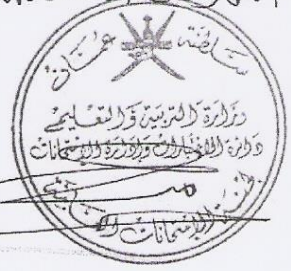 سلطنة عمان
وزارة التربية والتعليم
دائرة الاختبارات وإدارة الامتحانات
لجنة الامتحانات